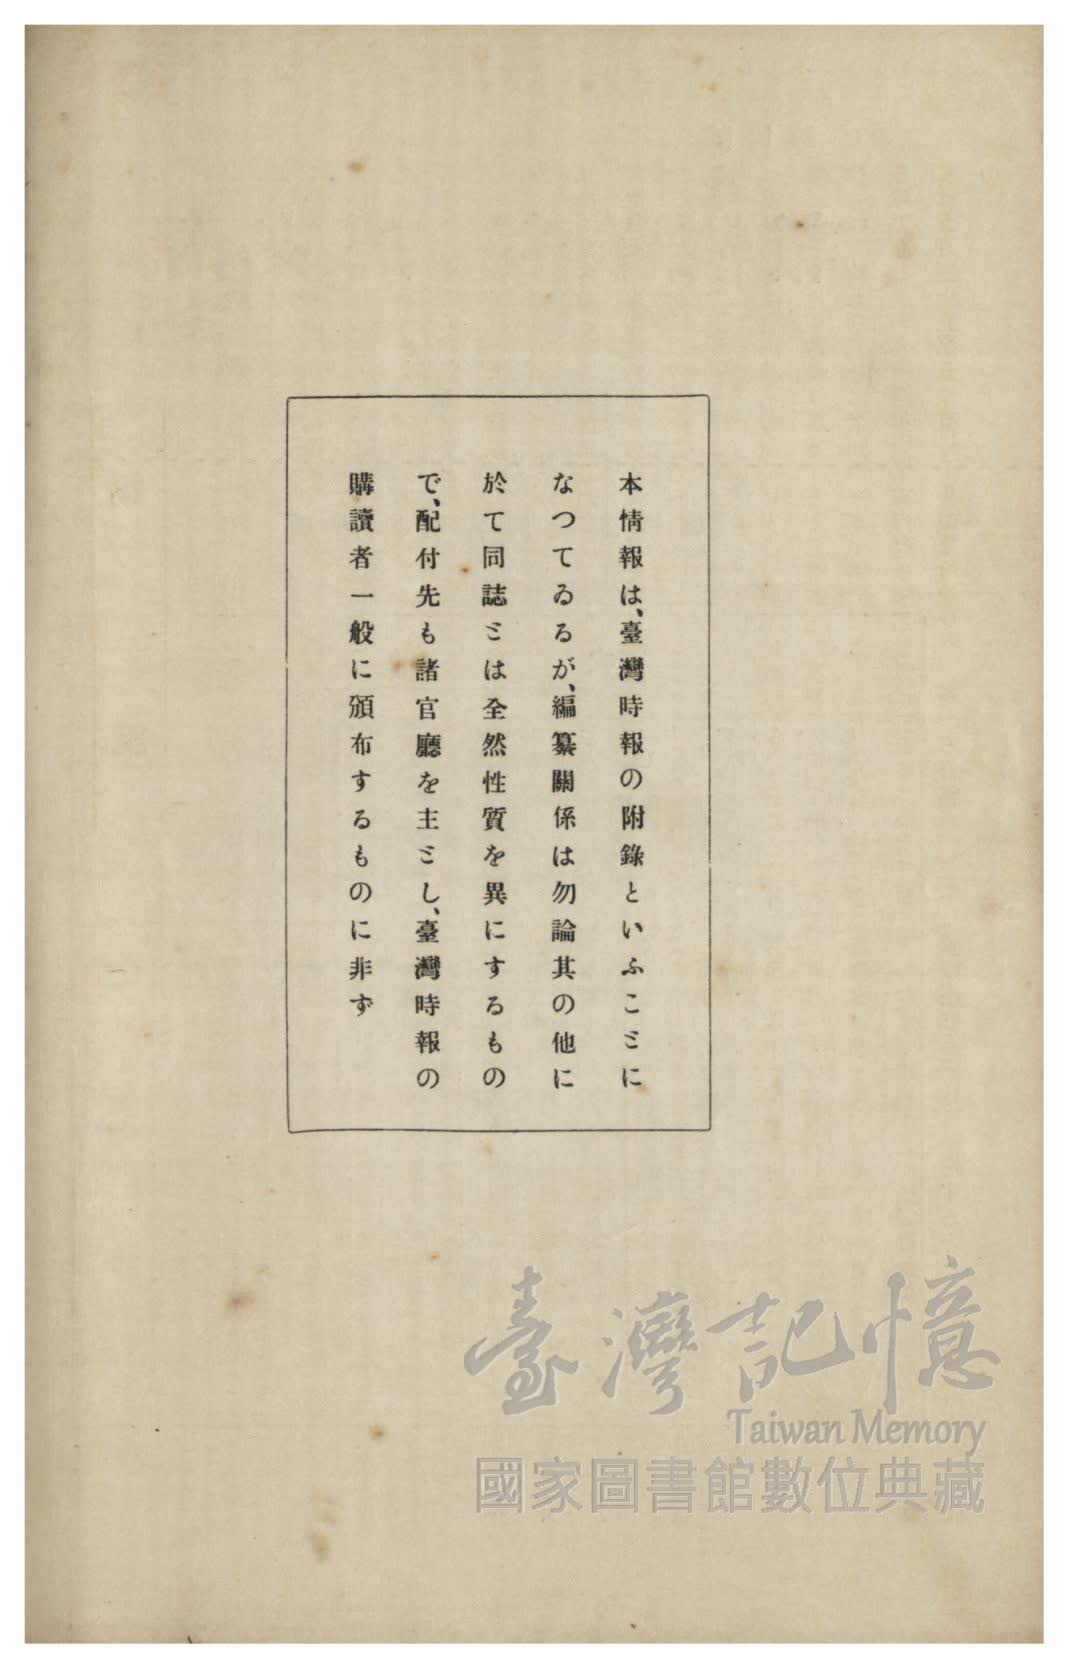 本情報は、臺灣時報の附錄といふことに
なつてゐるが、編纂關係は勿論其の他に
於て同誌とは全然性質を異にするもの
で、配付先も諸官廳を主とし、臺灣時報の
購讀者一般に頒布するものに非ず
臺灣記憶
Taiwan Memory
國家圖書館數位典藏